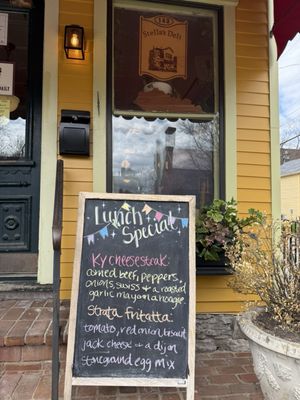 143
Stella's Deli
Lunch
Special
KY cheesesteak:
corned beef, peppers,
onions, swiss & a roasted
garlic mayo on a hoagie
Strata frittata:
tomato, red onion,
jack cheese & a dijon
stoneground egg mix